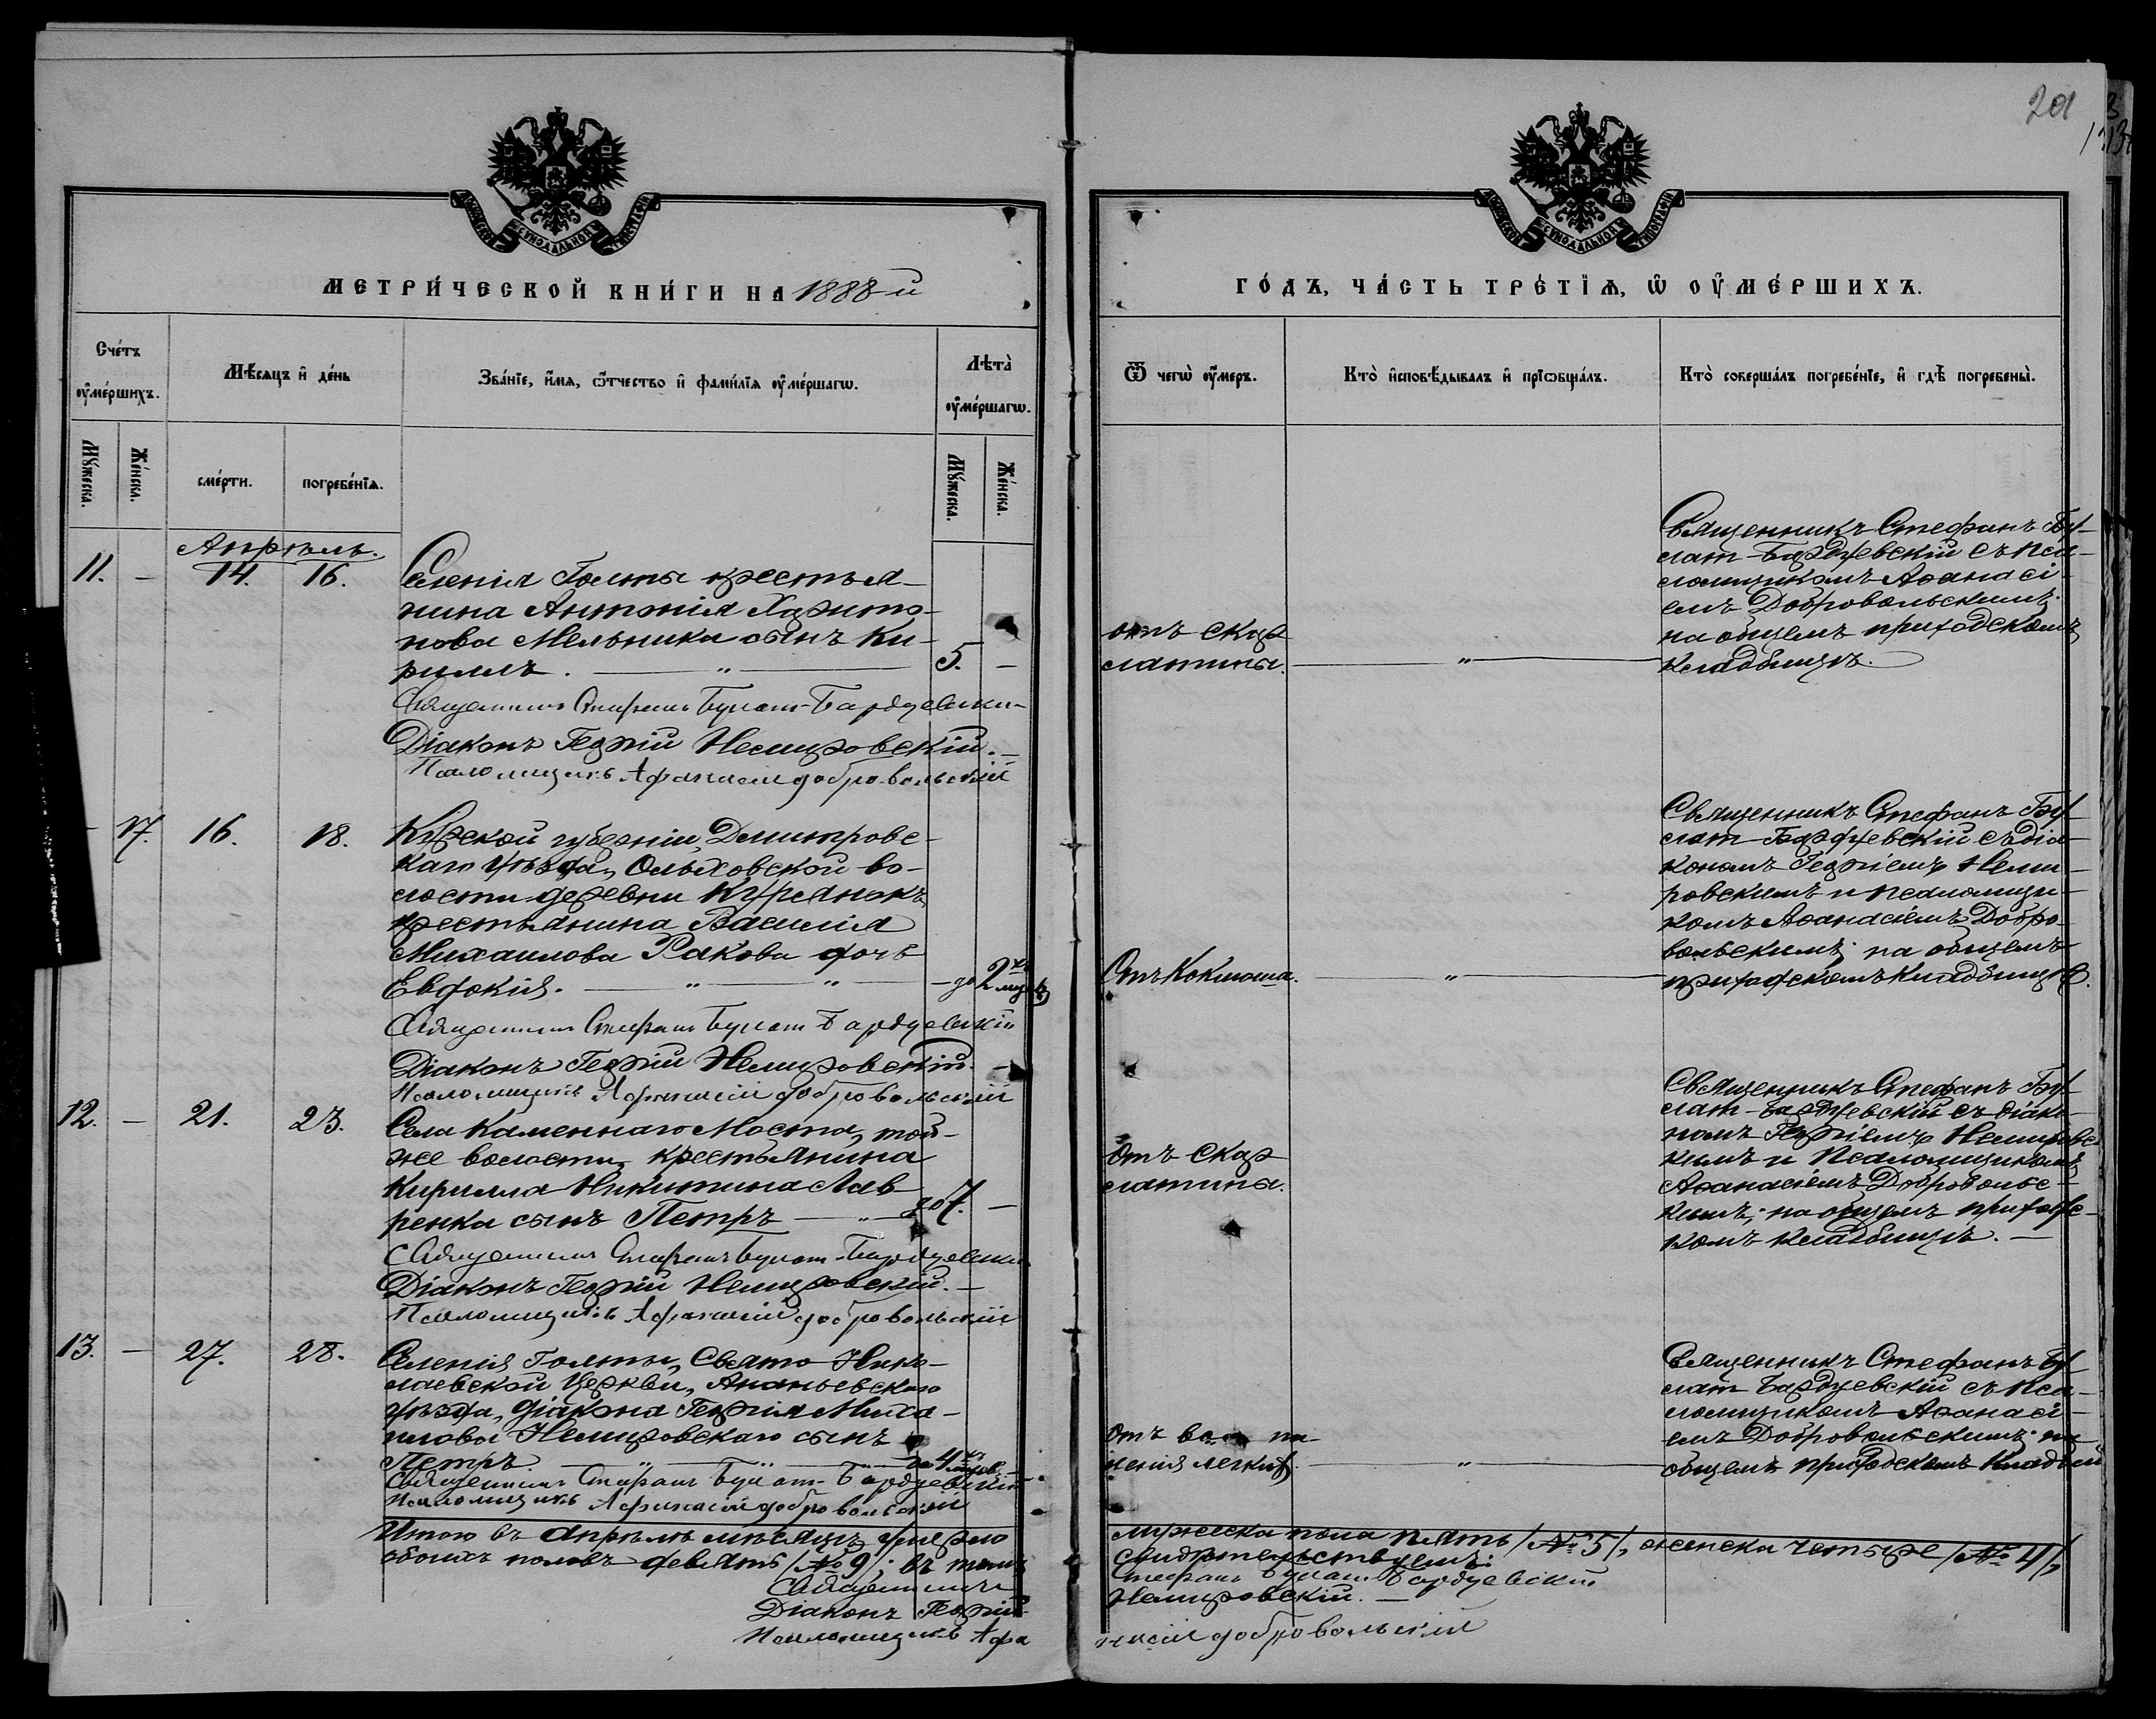 201
МЕТРИ́ЧЕСКОЙ КНИ́ГИ НА 1888-й
ГО́ДЪ, ЧА́СТЬ ТРЕ́ТЇѦ, Ѡ҆ ОУ҆МЕ́РШИХЪ.
Сче́тъ оу҆ме́ршихъ.
Мѣ́сѧцъ и҆ де́нь
Зва́нїе, и҆́мѧ, ѻ҆́тчество и҆ фами́лїѧ оу҆ме́ршагѡ.
Лѣ̀та оу҆ме́ршагѡ.
Ѿ чегѡ̀ оу҆́меръ.
Кто̀ и҆сповѣ́дывалъ и҆ прїѡбща́лъ.
Кто̀ соверша́лъ погребе́нїе, и҆ гдѣ̀ погребены̀.
Мꙋ́жеска.
Же́нска.
сме́рти.
погребе́нїѧ.
Мꙋ́жеска.
Же́нска.
Апрѣль.
11. - 14. 16.
Селенія Голты крестья-
нина Антонія Харито-
нова Мельника сынъ Ки-
риллъ. — " — 5. -
Священникъ Стефанъ Булат-Бардуевскій
Діаконъ Георгій Немировскій. -
Псаломщикъ Афанасій Добровольскій
отъ скар
латины. — " —
Священникъ Стефанъ Бу-
лат-Бардуевскій съ пса-
ломщикомъ Аѳанасі-
емъ Добровольскимъ;
на общемъ приходскомъ
кладбищѣ.
- 17. 16. 18.
Курской губерніи, Дмитровс-
каго уѣзда, Ольховской во-
лости деревни Курянокъ
крестьянина Василія
Михаилова Ракова дочь
Евдокія. — " — " — - до 2хъ мцевъ
Священникъ Стефанъ Булат Бардуевскій
Діаконъ Георгій Немировскій. -
Псаломщикъ Афанасій Добровольскій
Отъ Коклюша. — " —
Священникъ Стефанъ Бу-
лат-Бардуевскій съ діа-
кономъ Георгіемъ Неми-
ровскимъ и псаломщи-
комъ Аѳанасіемъ Добро-
вольскимъ; на общемъ
приходскомъ кладбищѣ.
12. - 21. 23.
Села Каменнаго Моста, той-
же волости, крестьянина
Кирилла Никитина Лав-
ренка сынъ Петръ — " — до 7. -
Священникъ Стефанъ Булат-Бардуевскій
Діаконъ Георгій Немировскій. -
Псаломщикъ Афанасій Добровольскій
отъ скар
латины.
Священникъ Стефанъ Бу-
лат-Бардуевскій съ діако-
номъ Георгіемъ Немировс-
кимъ и Псаломщикомъ
Аѳанасіемъ Добровольс-
кимъ; на общемъ приходс-
комъ кладбищѣ. -
13. - 27. 28.
Селенія Голты, Свято-Нико-
лаевской Церкви, Ананьевскаго
уѣзда, діакона Георгія Миха-
илова Немировскаго сынъ
Петръ — " — " — до 4хъ
Священникъ Стефанъ Булат-Бардуевскій
Псаломщикъ Афанасій Добровольскій
отъ
ненія легкихъ. — " —
Священникъ Стефанъ Бу
лат Бардуевскій съ пса-
ломщикомъ Аѳанасі-
емъ Добровольскимъ; на
общемъ приходскомъ кладбищ
Итого въ Апрѣлѣ мѣсяцѣ умерло мужеска пола пять /№ 5/, женска четыре /№ 4/,
обоихъ половъ девять /№ 9/; въ томъ свидѣтельствуемъ:
Священникъ Стефанъ Булат Бардуевскій
Діаконъ Георгій Немировскій. -
Псаломщикъ Афанасій Добровольскій